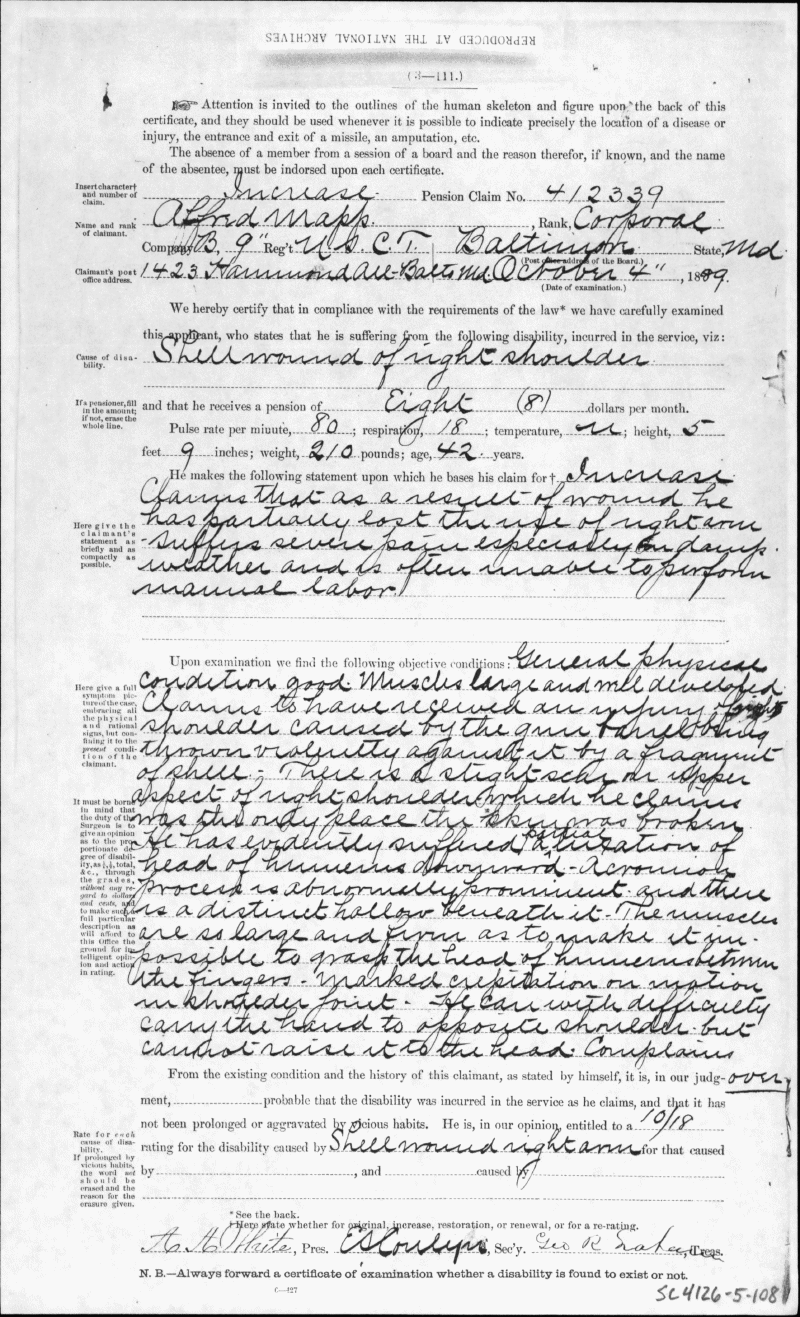 REPRODUCED AT THE NATIONAL ARCHIVES
(3—111.)
☞ Attention is invited to the outlines of the human skeleton and figure upon the back of this
certificate, and they should be used whenever it is possible to indicate precisely the location of a disease or
injury, the entrance and exit of a missile, an amputation, etc.
The absence of a member from a session of a board and the reason therefor, if known, and the name
of the absentee, must be indorsed upon each certificate.
Insert character† and number of claim.
Increase Pension Claim No. 412339
Name and rank of claimant.
Alfred Mapp, Rank, Corporal
Company B, 9" Reg't U.S.C.T. Baltimore State, Md
(Post office address of the Board.)
Claimant's post office address.
1423 Hammond All- Balto Md October 4", 1889.
(Date of examination.)
We hereby certify that in compliance with the requirements of the law* we have carefully examined
this applicant, who states that he is suffering from the following disability, incurred in the service, viz:
Cause of disability.
Shell wound of right shoulder
If a pensioner, fill in the amount; if not, erase the whole line.
and that he receives a pension of Eight (8) dollars per month.
Pulse rate per minute, 80; respiration, 18; temperature, n; height, 5
feet 9 inches; weight, 210 pounds; age, 42 years.
He makes the following statement upon which he bases his claim for† Increase
Here give the claimant's statement as briefly and as compactly as possible.
Claims that as a result of wound he
has partially lost the use of right arm
- suffers severe pain especially in damp
weather and is often unable to perform
manual labor.
Upon examination we find the following objective conditions: General physical
Here give a full symptom picture of the case, embracing all the physical and rational signs, but confining it to the present condition of the claimant.
condition good. Muscles large and well developed
Claims to have received an injury of right
shoulder caused by the gun barrel being
thrown violently against it by a fragment
of shell - There is a slight scar on upper
It must be borne in mind that the duty of the Surgeon is to give an opinion as to the proportionate degree of disability, as ¼, ½, total, &c., through the grades, without any regard to dollars and cents, and to make such a full particular description as will afford to this Office the ground for intelligent opinion and action in rating.
aspect of right shoulder which he claims
was the only place the skin was broken
He has evidently suffered partial luxation of
head of humerus downward - Acromion
process is abnormally prominent and there
is a distinct hollow beneath it - The muscles
are so large and firm as to make it im-
possible to grasp the head of humerus between
the fingers - Marked crepitation on motion
in shoulder joint - He can with difficulty
carry the hand to opposite shoulder but
cannot raise it to the head. Complains
over
From the existing condition and the history of this claimant, as stated by himself, it is, in our judg-
ment, probable that the disability was incurred in the service as he claims, and that it has
not been prolonged or aggravated by vicious habits. He is, in our opinion, entitled to a 10/18
Rate for each cause of disability. If prolonged by vicious habits, the word not should be erased and the reason for the erasure given.
rating for the disability caused by Shell wound right arm for that caused
by , and caused by
* See the back.
† Here state whether for original, increase, restoration, or renewal, or for a re-rating.
A A White, Pres. , Sec'y. Geo R , Treas.
N. B.—Always forward a certificate of examination whether a disability is found to exist or not.
C—427
SC4126-5-108